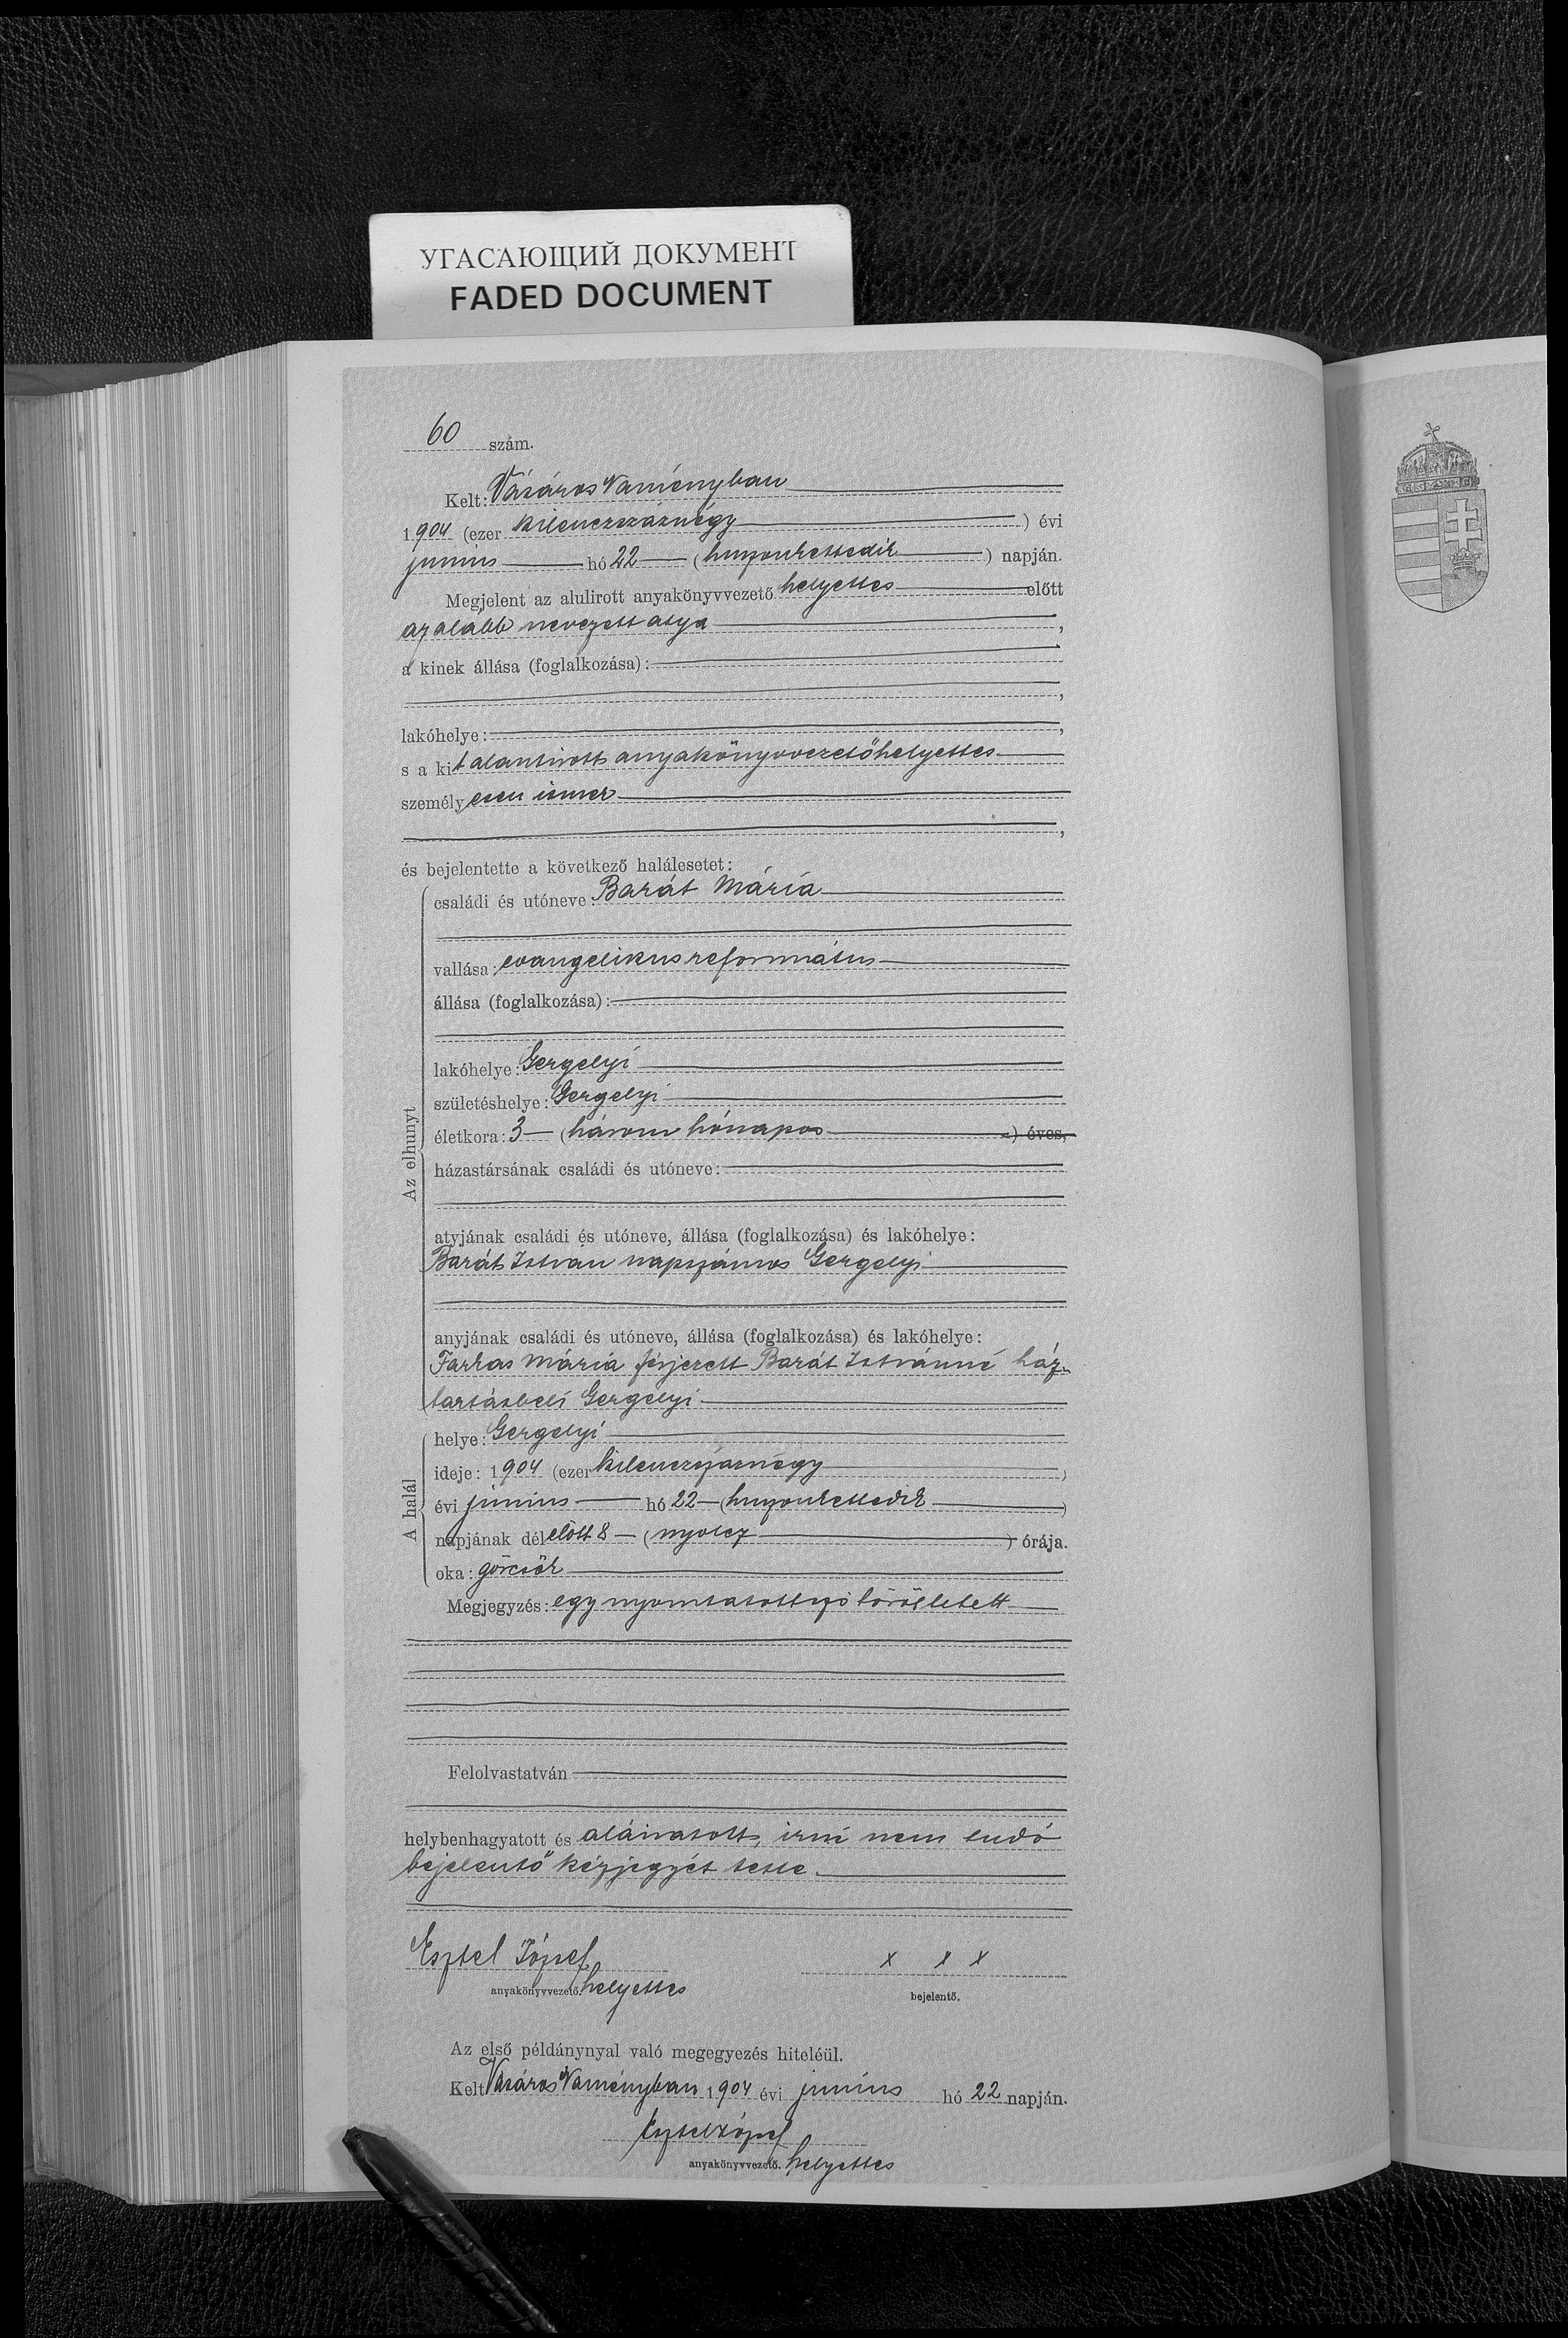 УГАСАЮЩИЙ ДОКУМЕНТ
FADED DOCUMENT
60 szám.
Kelt: Vásáros Naményban
1904 (ezer kilenczszáznégy) évi
junius hó 22 (huszonkettedik) napján.
Megjelent az alulirott anyakönyvvezető helyettes előtt
az alább nevezett atya,
a kinek állása (foglalkozása):
,
lakóhelye:,
s a kit alantirott anyakönyvvezetőhelyettes
személyesen ismer
,
és bejelentette a következő halálesetet:
Az elhunyt
családi és utóneve: Barát Mária
vallása: evangelikus református
állása (foglalkozása):
lakóhelye: Gergelyi
születéshelye: Gergelyi
életkora: 3 (három hónapos) éves,
házastársának családi és utóneve:
atyjának családi és utóneve, állása (foglalkozása) és lakóhelye:
Barát István napszámos Gergelyi
anyjának családi és utóneve, állása (foglalkozása) és lakóhelye:
Farkas Mária férjezett Barát Istvánné ház-
tartásbeli Gergelyi
A halál
helye: Gergelyi
ideje: 1904 (ezer kilenczszáznégy)
évi junius hó 22 (huszonkettedik)
napjának délelőtt 8 (nyolcz) órája.
oka: görcsök
Megjegyzés: egy nyomtatott szó töröltetett
Felolvastatván
helybenhagyatott és aláiratott, irni nem tudó
bejelentő kézjegyét tette.
Esztel József x x x
anyakönyvvezető. helyettes bejelentő.
Az első példánynyal való megegyezés hiteléül.
Kelt Vásáros Naményban 1904 évi junius hó 22 napján.
Esztel József
anyakönyvvezető. helyettes